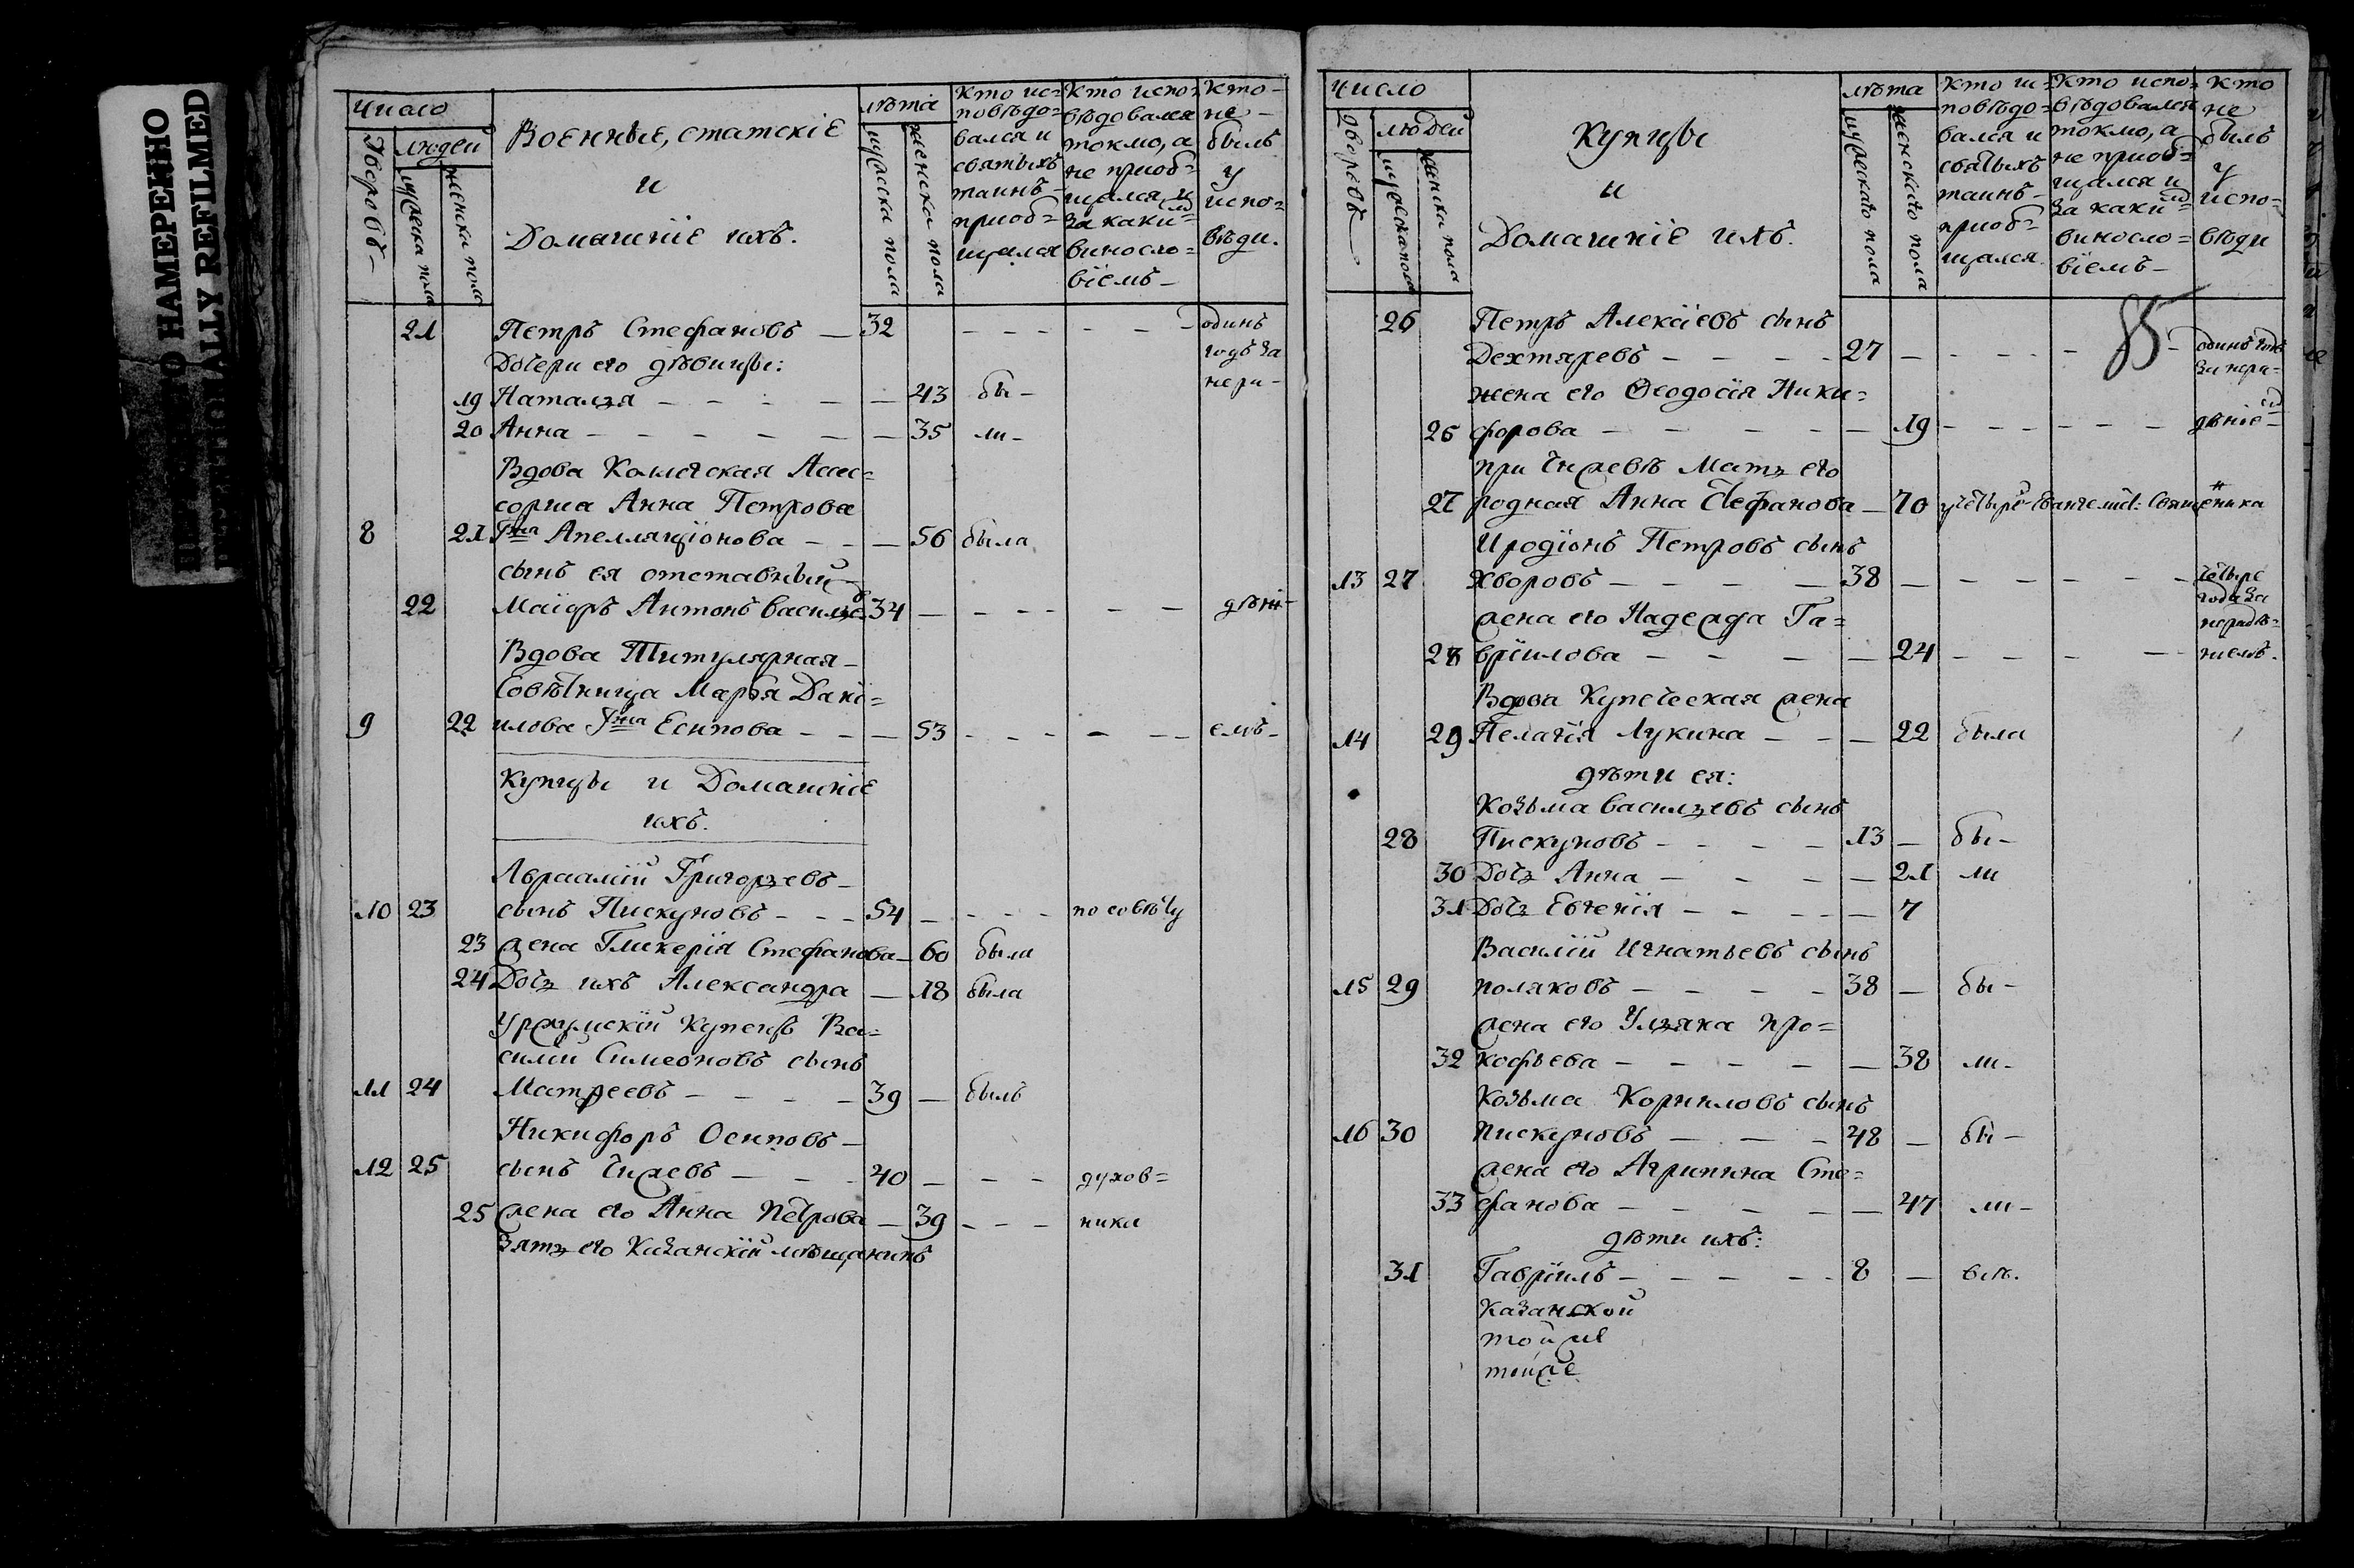 НАМЕРЕННО
ALLY REFILMED
Число
Дворовъ
людей
мужеска пола
женска пола
Военные, статскіе
и
Домашніе ихъ.
лѣта
мужеска пола
женска пола
Кто ис=
повѣдо=
вался и
святыхъ
таинъ
приоб=
щался
Кто испо=
вѣдовался
токмо, а
не приоб=
щался и
за каки=
винosло=
віемъ
Кто
не
былъ
у
испо=
вѣди.
21 Петръ Стефановъ — 32 — — — — — одинъ
годъ за
Дочери его дѣвицы:
нера-
19 Наталья — — — — — 43 бы-
20 Анна — — — — — 35 ли-
Вдова Колежская Асес=
сорша Анна Петрова
8 21 Гжа Апелляціонова — — — 56 была
сынъ ея отставный
22 Маіоръ Антонъ Василье 34 — — — — — дѣні-
Вдова Титулярная
Совѣтница Марья Дані=
9 22 илова Гжа Есипова — — — 53 — — — — — емъ-
Купцы и Домашніе
ихъ.
Авраамій Григорьевъ
10 23 сынъ Пискуновъ — — — 54 — — — — по совѣту
23 жена Гликерія Стефанова — 60 была
24 Дочь ихъ Александра — 18 была
Уржумскій купецъ Ва=
силій Симеоновъ сынъ
11 24 Матвеевъ — — — — 39 — былъ
Никифоръ Осиповъ
12 25 сынъ Чижевъ — — — 40 — — — духов=
25 жена его Анна Петрова — 39 — — — ника
Зять его Казанскій мѣщанинъ
Число
дворовъ
людей
мужеска пола
женска пола
Купцы
и
Домашніе ихъ.
лѣта
мужескаго пола
женскаго пола
Кто ис=
повѣдо=
вался и
святыхъ
таинъ
приоб=
щался
Кто испо=
вѣдовался
токмо, а
не приоб=
щался и
за каки=
винosло=
віемъ
Кто
не
былъ
у
испо=
вѣди
85
26 Петръ Алексіевъ сынъ
Дехтяревъ — — — — 27 — — — — — одинъ годъ
за нера=
жена его Ѳеодосія Ники=
26 форова — — — — — 19 — — — — — — дѣніе
при Чижевѣ Мать его
27 родная Анна Стефанова — 70 священника
Иродіонъ Петровъ сынъ
13 27 Хворовъ — — — — 38 — — — — — — четыре
года за
жена его Надежда Га= нерадѣ=
28 вріилова — — — — 24 — — — — ніемъ.
Вдова Купеческая жена
14 29 Пелагія Лукина — — — 22 была
дѣти ея:
Козьма Васильевъ сынъ
28 Пискуновъ — — — — 13 — бы-
30 Дочь Анна — — — — 21 ли
31 Дочь Евгенія — — — — — 7
Василій Игнатьевъ сынъ
15 29 Поляковъ — — — — 38 — бы-
жена его Ульяна Про=
32 кофьева — — — — — 38 ли-
Козьма Корниловъ сынъ
16 30 Пискуновъ — — — 48 — бы-
жена его Агрипина Сте=
33 фанова — — — — — 47 ли-
дѣти ихъ:
31 Гавріилъ — — — — — 8 —
Казанской
той же
той же